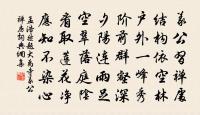 義公習禪處
結構依空林
戶外一峰秀
階前群壑深
夕陽連雨足
空翠落庭陰
看取蓮花淨
應知不染心
孟浩然題大禹寺義公
禪房詞典網集